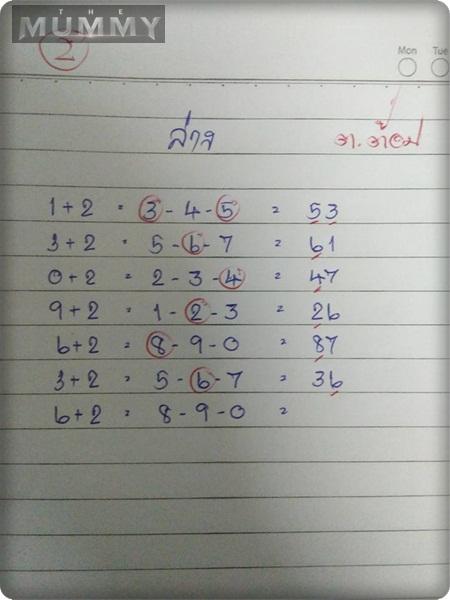 THE
MUMMY
2
Mon Tue
ล่าง
อ. อ้อม
1+2 = 3-4-5 = 53
3+2 = 5-6-7 = 61
0+2 = 2-3-4 = 47
9+2 = 1-2-3 = 26
6+2 = 8-9-0 = 87
3+2 = 5-6-7 = 36
6+2 = 8-9-0 =